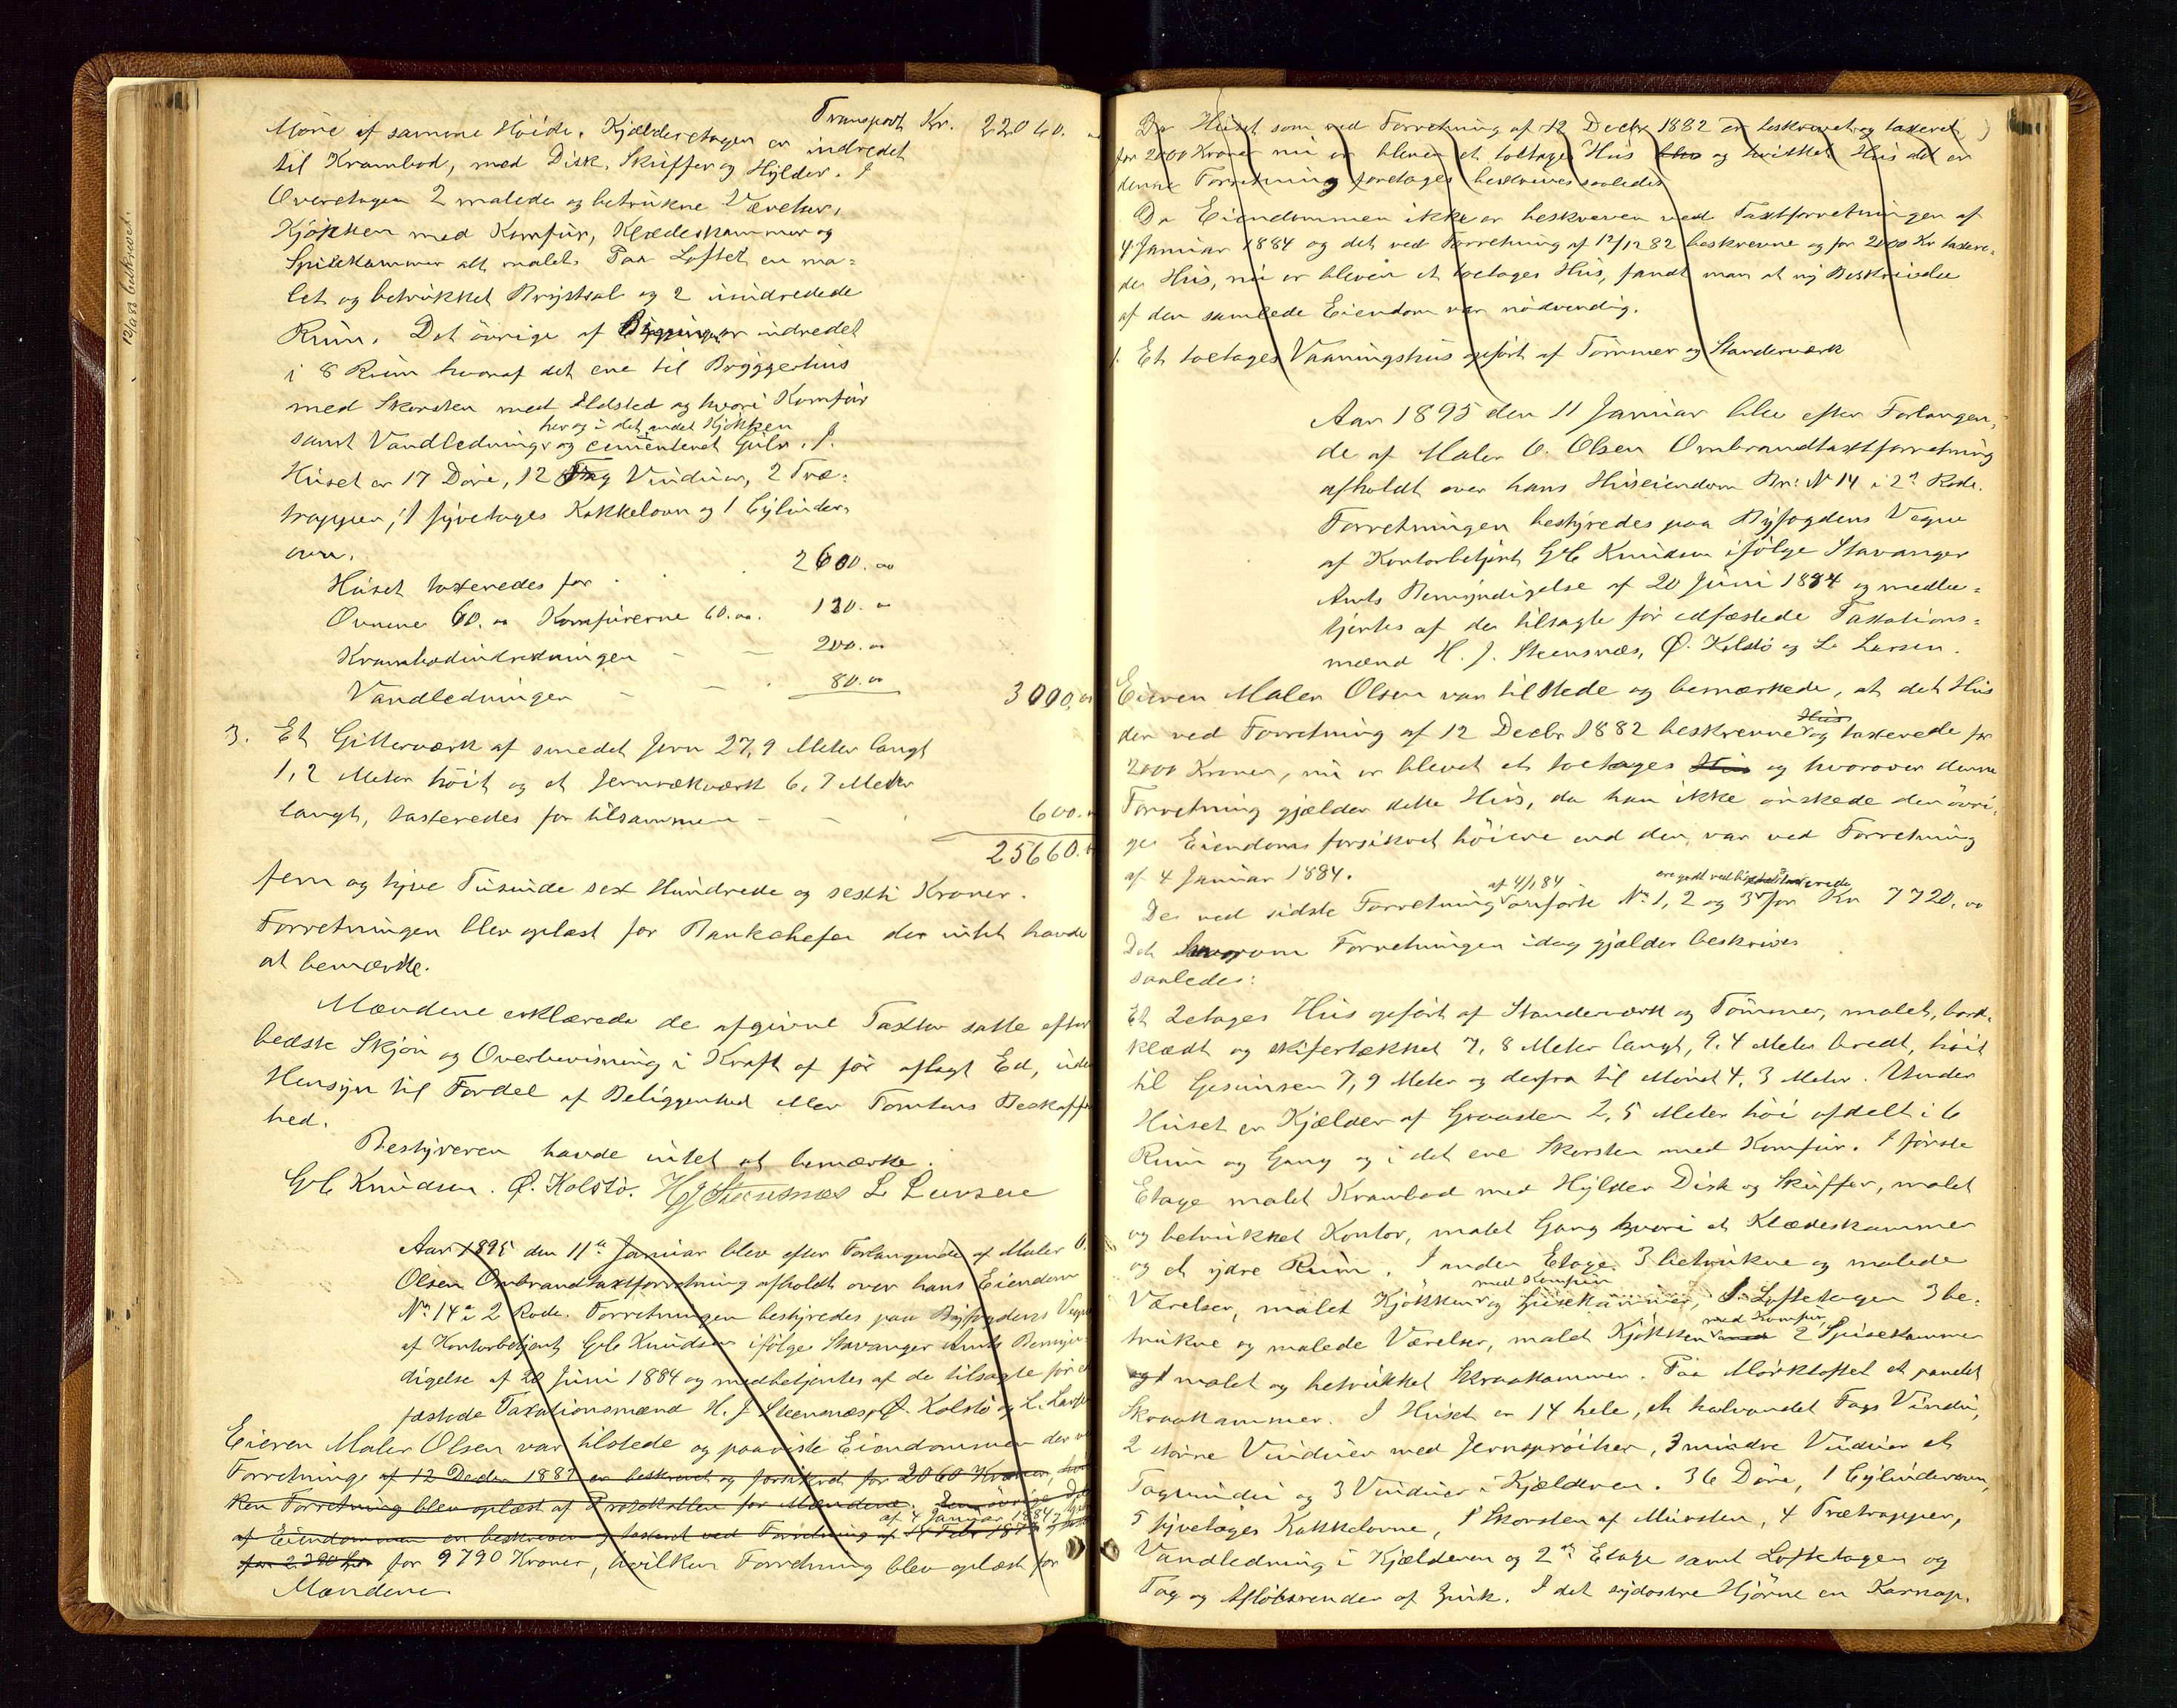 12/12 82 beskrevet.
Transport Kr. 22060.
Møne af samme Høide. Kjælderetagen er indredet
til Krambod, med Disk, Skuffer og Hylder. I
Overetagen 2 malede og betrukne Værelser,
Kjøkken med Komfur, Klædeskammer og
Spisekammer alt malet. Paa Loftet en ma-
let og betrukket Brystsal og 2 uindredede
Rum. Det øvrige af Bygningen er indredet
i 8 Rum hvoraf det ene til Bryggerhus
med Skorsten med Ildsted og hvori Komfur
her og i det andet Kjøkken
samt Vandlednings og cementeret Gulv. I
Huset er 17 Døre, 12 Fag Vinduer, 2 Træ-
trapper, 1 fyretages Kakkelovn og 1 Cylinder-
ovn.
Huset taxeredes for . . 2600.00
Ovnene 60.00 Komfurerne 60.00. 120.00
Krambodindredningen - - 200.00
Vandledningen - - . 80.00
3000,00
3. Et Gitterværk af smedet Jern 27,9 Meter langt
1,2 Meter høit og et Jernrækværk 6,7 Meter
langt, taxeredes for tilsammen - - . 600.
25660.
fem og tyve Tusinde sex Hundrede og sexti Kroner.
Forretningen blev oplæst for Bankchefen der intet havde
at bemærke.
Mændene erklærede de afgivne Taxter satte efter
bedste Skjøn og Overbevisning i Kraft af før aflagt Ed, uden
Hensyn til Fordel af Beliggenhed eller Tomtens Beskaffen
hed.
Bestyreren havde intet at bemærke.
GC Knudsen. Ø. Kolstø. HJ Steensnæs L Larsen
Aar 1895 den 11te Januar blev efter Forlangende af Maler O.
Olsen Ombrandtaxtforretning afholdt over hans Eiendom
No 14 i 2 Rode. Forretningen bestyredes paa Byfogdens Vegne
af Kontorbetjent GC Knudsen ifølge Stavanger Amts Bemyn
digelse af 20 Juni 1884 og medbetjentes af de tilsagte før ed
fæstede Taxationsmænd H. J. Steensnæs, Ø. Kolstø og L. Larsen
Eieren Maler Olsen var tilstede og paaviste Eiendommen der v
Forretninge af 12 Decbr 1882 er beskrevet og forsikret for 2060 Kroner, hvil
ken Forretning blev oplæst af Protokollen for Mændene. Den øvrige Del
af 4 Januar 1884
af Eiendommen er beskreven og taxeret ved Forretning af 14 Febr 18
for 2390 Kr for 9790 Kroner, hvilken Forretning blev oplæst for
Mændene
Da Huset som ved Forretning af 12 Decbr 1882 er beskrevet og taxeret
for 2000 Kroner nu er bleven et toetages Hus og hvilket Hus det er
denne Forretning foretages beskrives saaledes
Da Eiendommen ikke er beskreven ved Taxtforretningen af
4 Januar 1884 og det ved Forretning af 12/12 82 beskrevne og for 2000 Kr taxere-
de Hus, nu er bleven et toetages Hus, fandt man at ny Beskrivelse
af den samlede Eiendom var nødvendig.
1. Et toetages Vaaningshus opført af Tømmer og Standerværk
Aar 1895 den 11 Januar blev efter Forlangen-
de af Maler O. Olsen Ombrandtaxtforretning
afholdt over hans Huseiendom Br: No 14 i 2n Rode.
Forretningen bestyredes paa Byfogdens Vegne
af Kontorbetjent GC Knudsen ifølge Stavanger
Amts Bemyndigelse af 20 Juni 1884 og medbe-
tjentes af de tilsagte før edfæstede Taxations-
mænd H. J. Steensnæs, Ø. Kolstø og L. Larsen.
Eieren Maler Olsen var tilstede og bemærkede, at det Hus
Hus
der ved Forretning af 12 Decbr 1882 beskrevne og taxerede for
2000 Kroner, nu er blevet et toetages Hus og hvorover denne
Forretning gjælder dette Hus, da han ikke ønskede den øvri-
ge Eiendoms forsikret høiere end den var ved Forretning
af 4 Januar 1884.
af 4/1 84
De ved sidste Forretning anførte No 1, 2 og 3 for Kr 7720.00
Det hvorom Forretningen idag gjælder beskrives
saaledes:
Et 2etages Hus opført af Standerværk og Tømmer, malet, bord-
klædt og skifertækket 7,8 Meter langt, 9,4 Meter bredt, høit
til Gesimsen 7,9 Meter og derfra til Mønet 4,3 Meter. Under
Huset er Kjælder af Graasten 2,5 Meter høi afdelt i 6
Rum og Gang og i det ene Skorsten med Komfur. I første
Etage malet Krambod med Hylder Disk og Skuffer, malet
og betrukket Kontor, malet Gang hvori et Klædeskammer
og et ydre Rum. I anden Etage 3 betrukne og malede
med Komfur
Værelser, malet Kjøkken og Spisekammer, I Loftetagen 3 be-
med Komfur,
trukne og malede Værelser, malet Kjøkken med 2 Spisekammer
og 1 malet og betrukket Skraakammer. Paa Mørkloftet et panelet
Skraakammer. I Huset er 14 hele, et halvandet Fags Vindu,
2 større Vinduer med Jernsprosser, 7 mindre Vinduer et
Tagvindu og 3 Vinduer i Kjælderen. 36 Døre, 1 Cylinderovn,
5 fyretages Kakkelovne, 1 Skorsten af Mursten, 4 Trætrapper,
Vandledning i Kjælderen og 2den Etage samt Loftetagen og
Tag og Afløbsrender af Zink. I det sydostre Hjørne en Karnap.